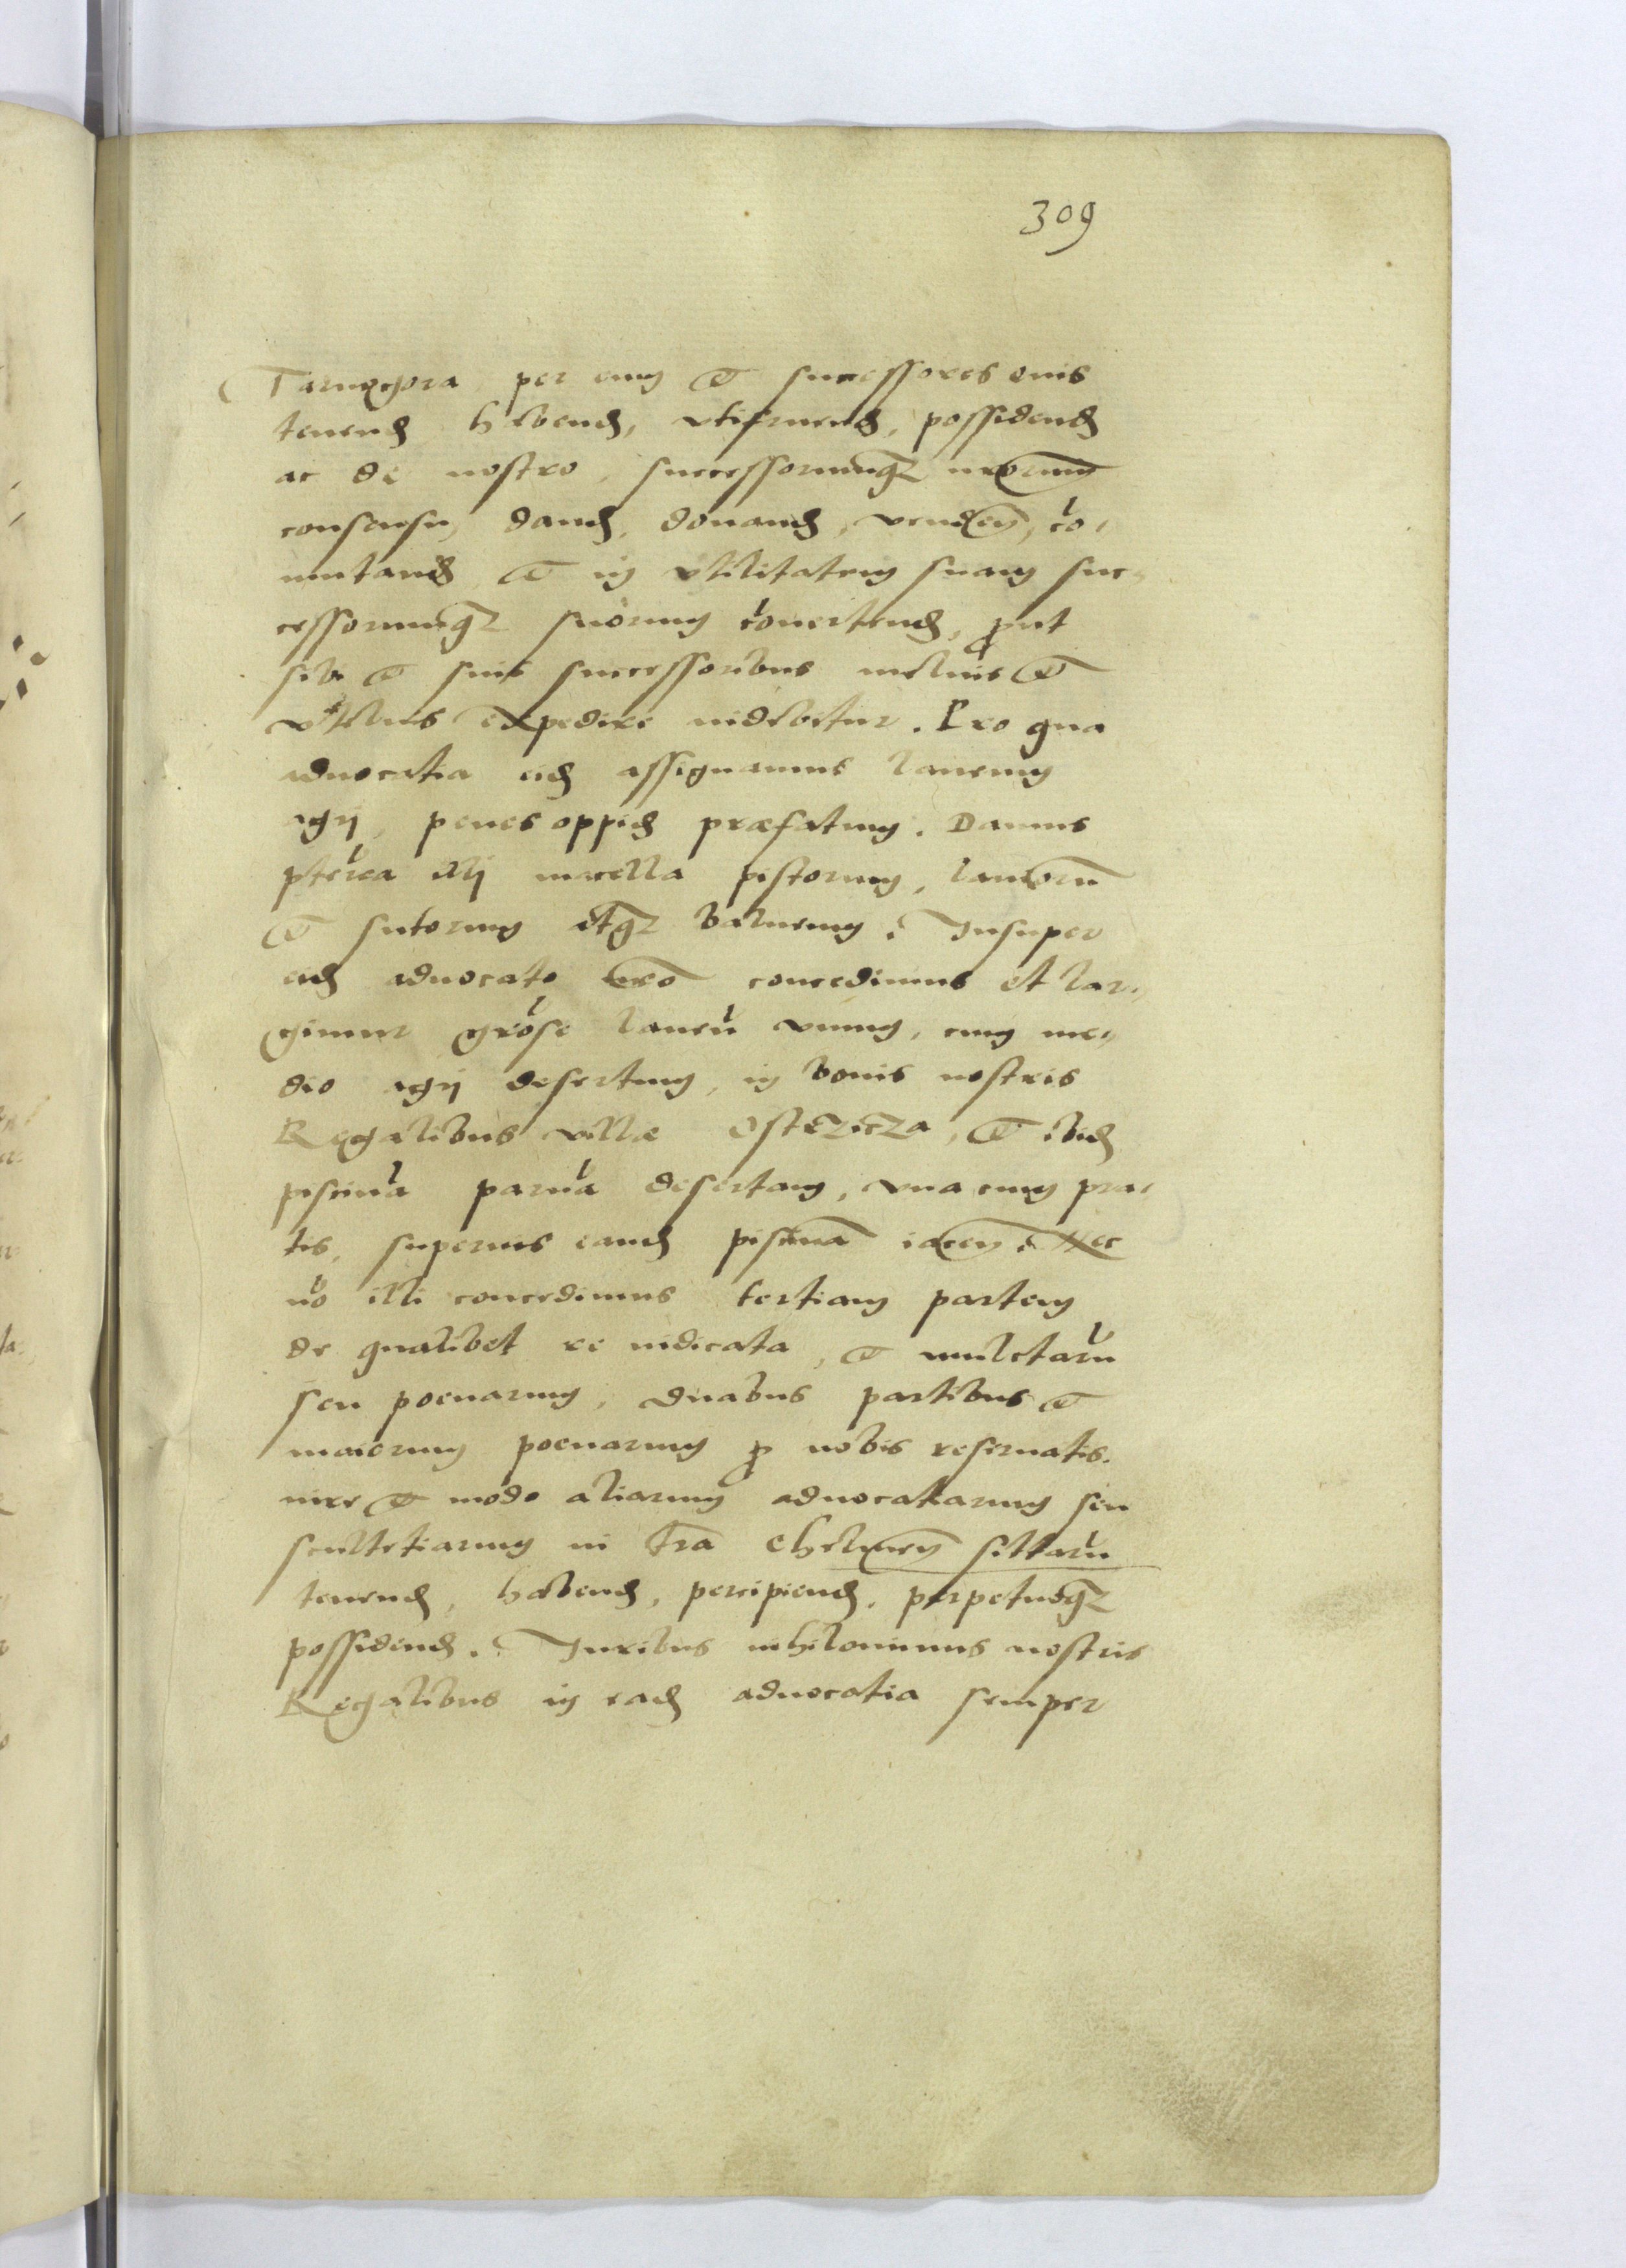 309
Tarnogora per eum et successores eius
tenend habend, utifruend, possidend
ac de nostro, successorumqz nrorum
consensu, dand, donand, venden, cō,
mutand et in utilitatem suam suc,
cessorumqz suorum cōuertend, put
sibi et suis successoribus melius et
vtilius expedire uidebitur. Pro qua
aduocatia eid assignamus laneum
agrj, penes oppid præfatum. Damus
pterea illj macella pistorum, lanioru
et sutorum atqz balneum. Insuper
eid aduocato nro concedimus et lar,
gimur laneū vnum, cum me,
dio agrj desertum, in bonis nostris
Regalibus villæ Ostrzicza, et ibid
piscinā paruā desertam, vna cum pra,
tis, superius eand piscina iacen. Nec
nō illi concedimus tertiam partem
de qualibet re iudicata, et mulctarū
seu poenarum, duabus partibus et
maiorum poenarum p nobis reseruatis.
iure et modo aliarum aduocatiarum seu
scultetiarum in tra Chelmen sittarū
tenend, habend, percipiend, perpetuoqz
possidend. Iuribus nihilominus nostris
Regalibus in ead aduocatia semper